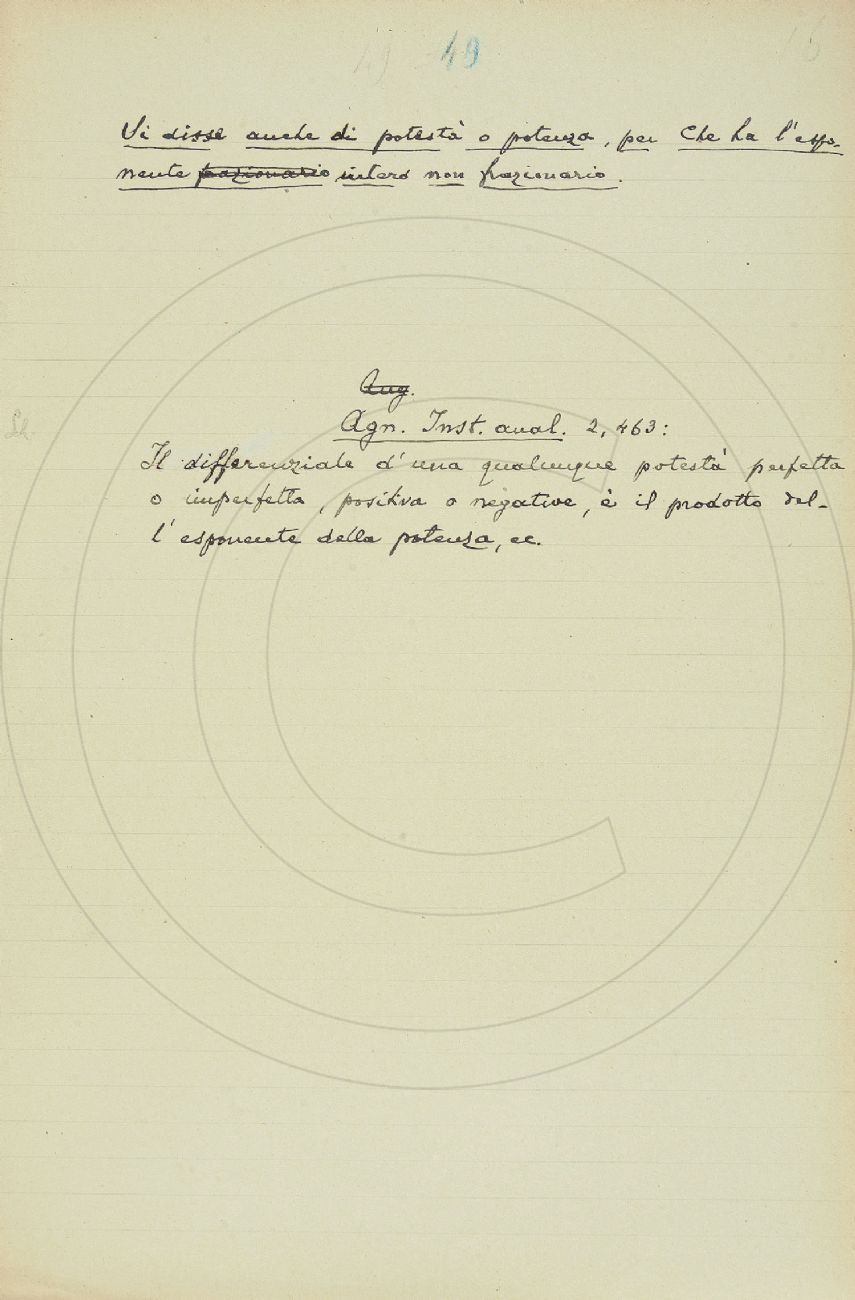 49 49 16
Vi disse anche di potestà o potenza, per Che ha l'espo-
nente frazionario intero non frazionario.
Aug.
Agn. Inst. anal. 2, 463:
Il differenziale d'una qualunque potestà perfetta
o imperfetta, positiva o negative, è il prodotto del-
l'esponente della potenza, ec.